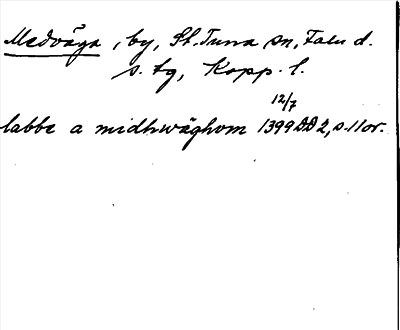 Medväga, by, St. Tuna sn, Falu d.
s. tg, Kopp. l.
12/7
labbe a midhwäghom 1399 DD 2, s. 11 or.